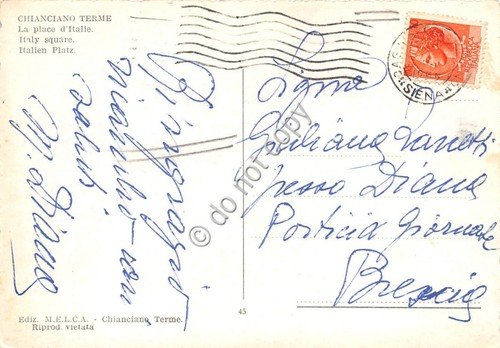 CHIANCIANO TERME
La place d'Italie.
Italy square.
Italien Platz.
Ringrazio
saluti
M. Diana
Sig.na
Giuliana Zanetti
presso Diana
Porticia Giornale
Brescia
SIENA
do not copy
45
Ediz. M.E.L.C.A. - Chianciano Terme.
Riprod. vietata